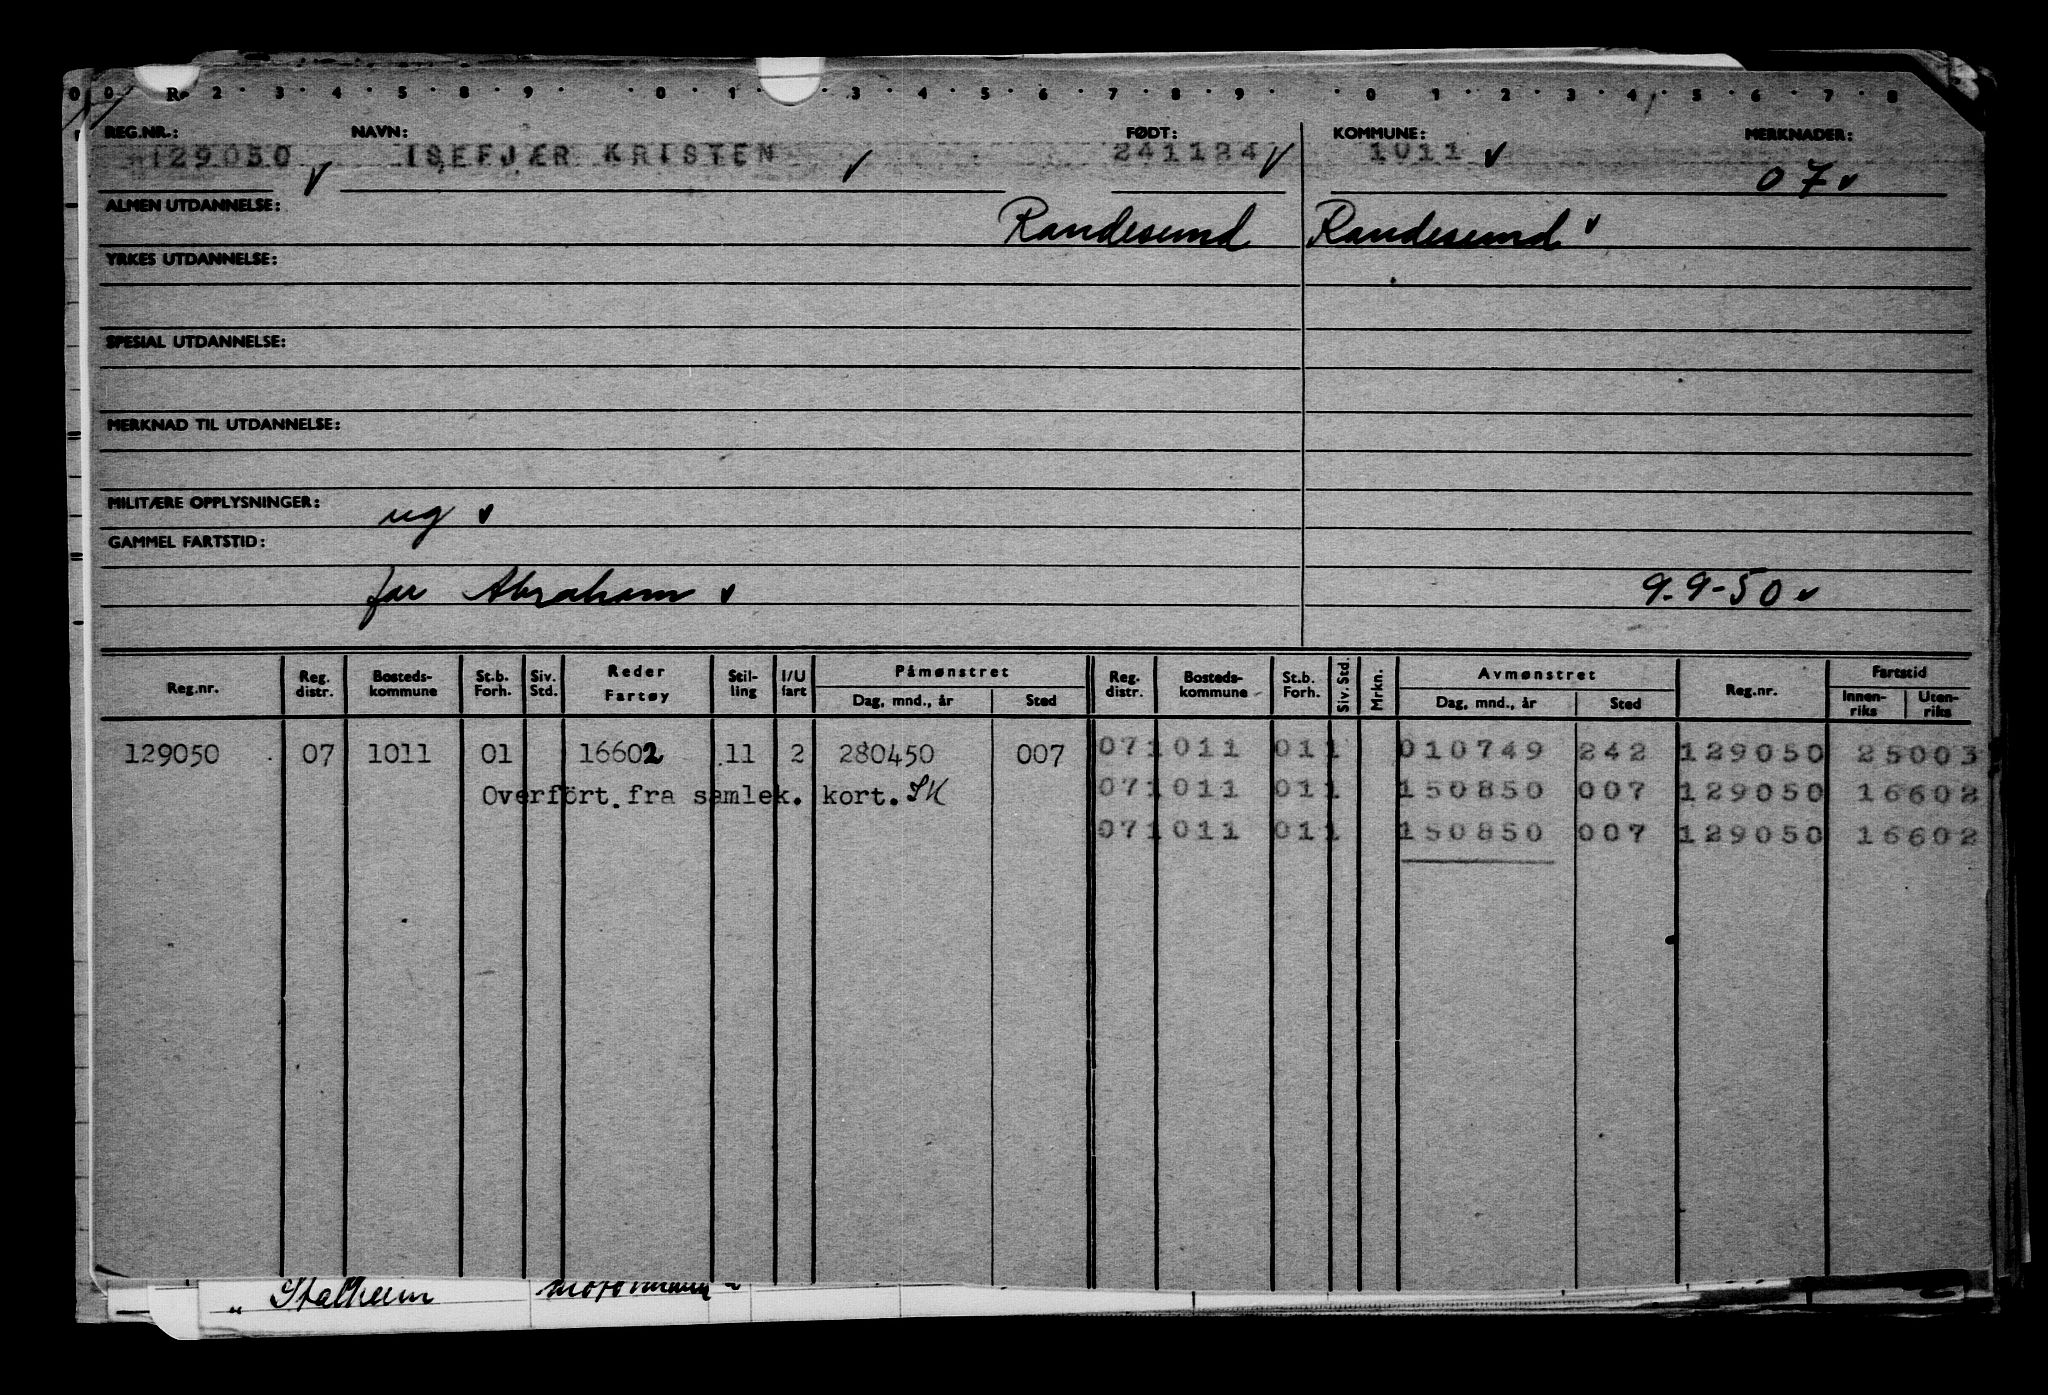 0 0 R 2 3 4 5 8 9 0 1 3 4 5 6 7 8 9 0 1 2 3 4 5 6 7 8
REG.NR.: NAVN: FØDT: KOMMUNE: MERKNADER:
129050 ISEFJÆR KRISTEN 241184 1011 07
ALMEN UTDANNELSE: Randesund Randesund
YRKES UTDANNELSE:
SPESIAL UTDANNELSE:
MERKNAD TIL UTDANNELSE:
MILITÆRE OPPLYSNINGER: ug
GAMMEL FARTSTID:
far Abraham 9.9-50
Reg.nr. Reg. distr. Bosteds-kommune St.b. Forh. Siv. Std. Reder Fartøy Stil-ling I/U fart Påmønstret Dag, mnd., år Sted Reg. distr. Bosteds-kommune St.b. Forh. Siv. Std. Mrkn. Avmønstret Dag, mnd., år Sted Reg.nr. Fartstid Innen-riks Uten-riks
129050 07 1011 01 16602 11 2 280450 007 071011 011 010749 242 129050 25003
Overfört fra samlek. kort. SK 071011 011 150850 007 129050 16602
071011 011 150850 007 129050 16602
" Stalheim